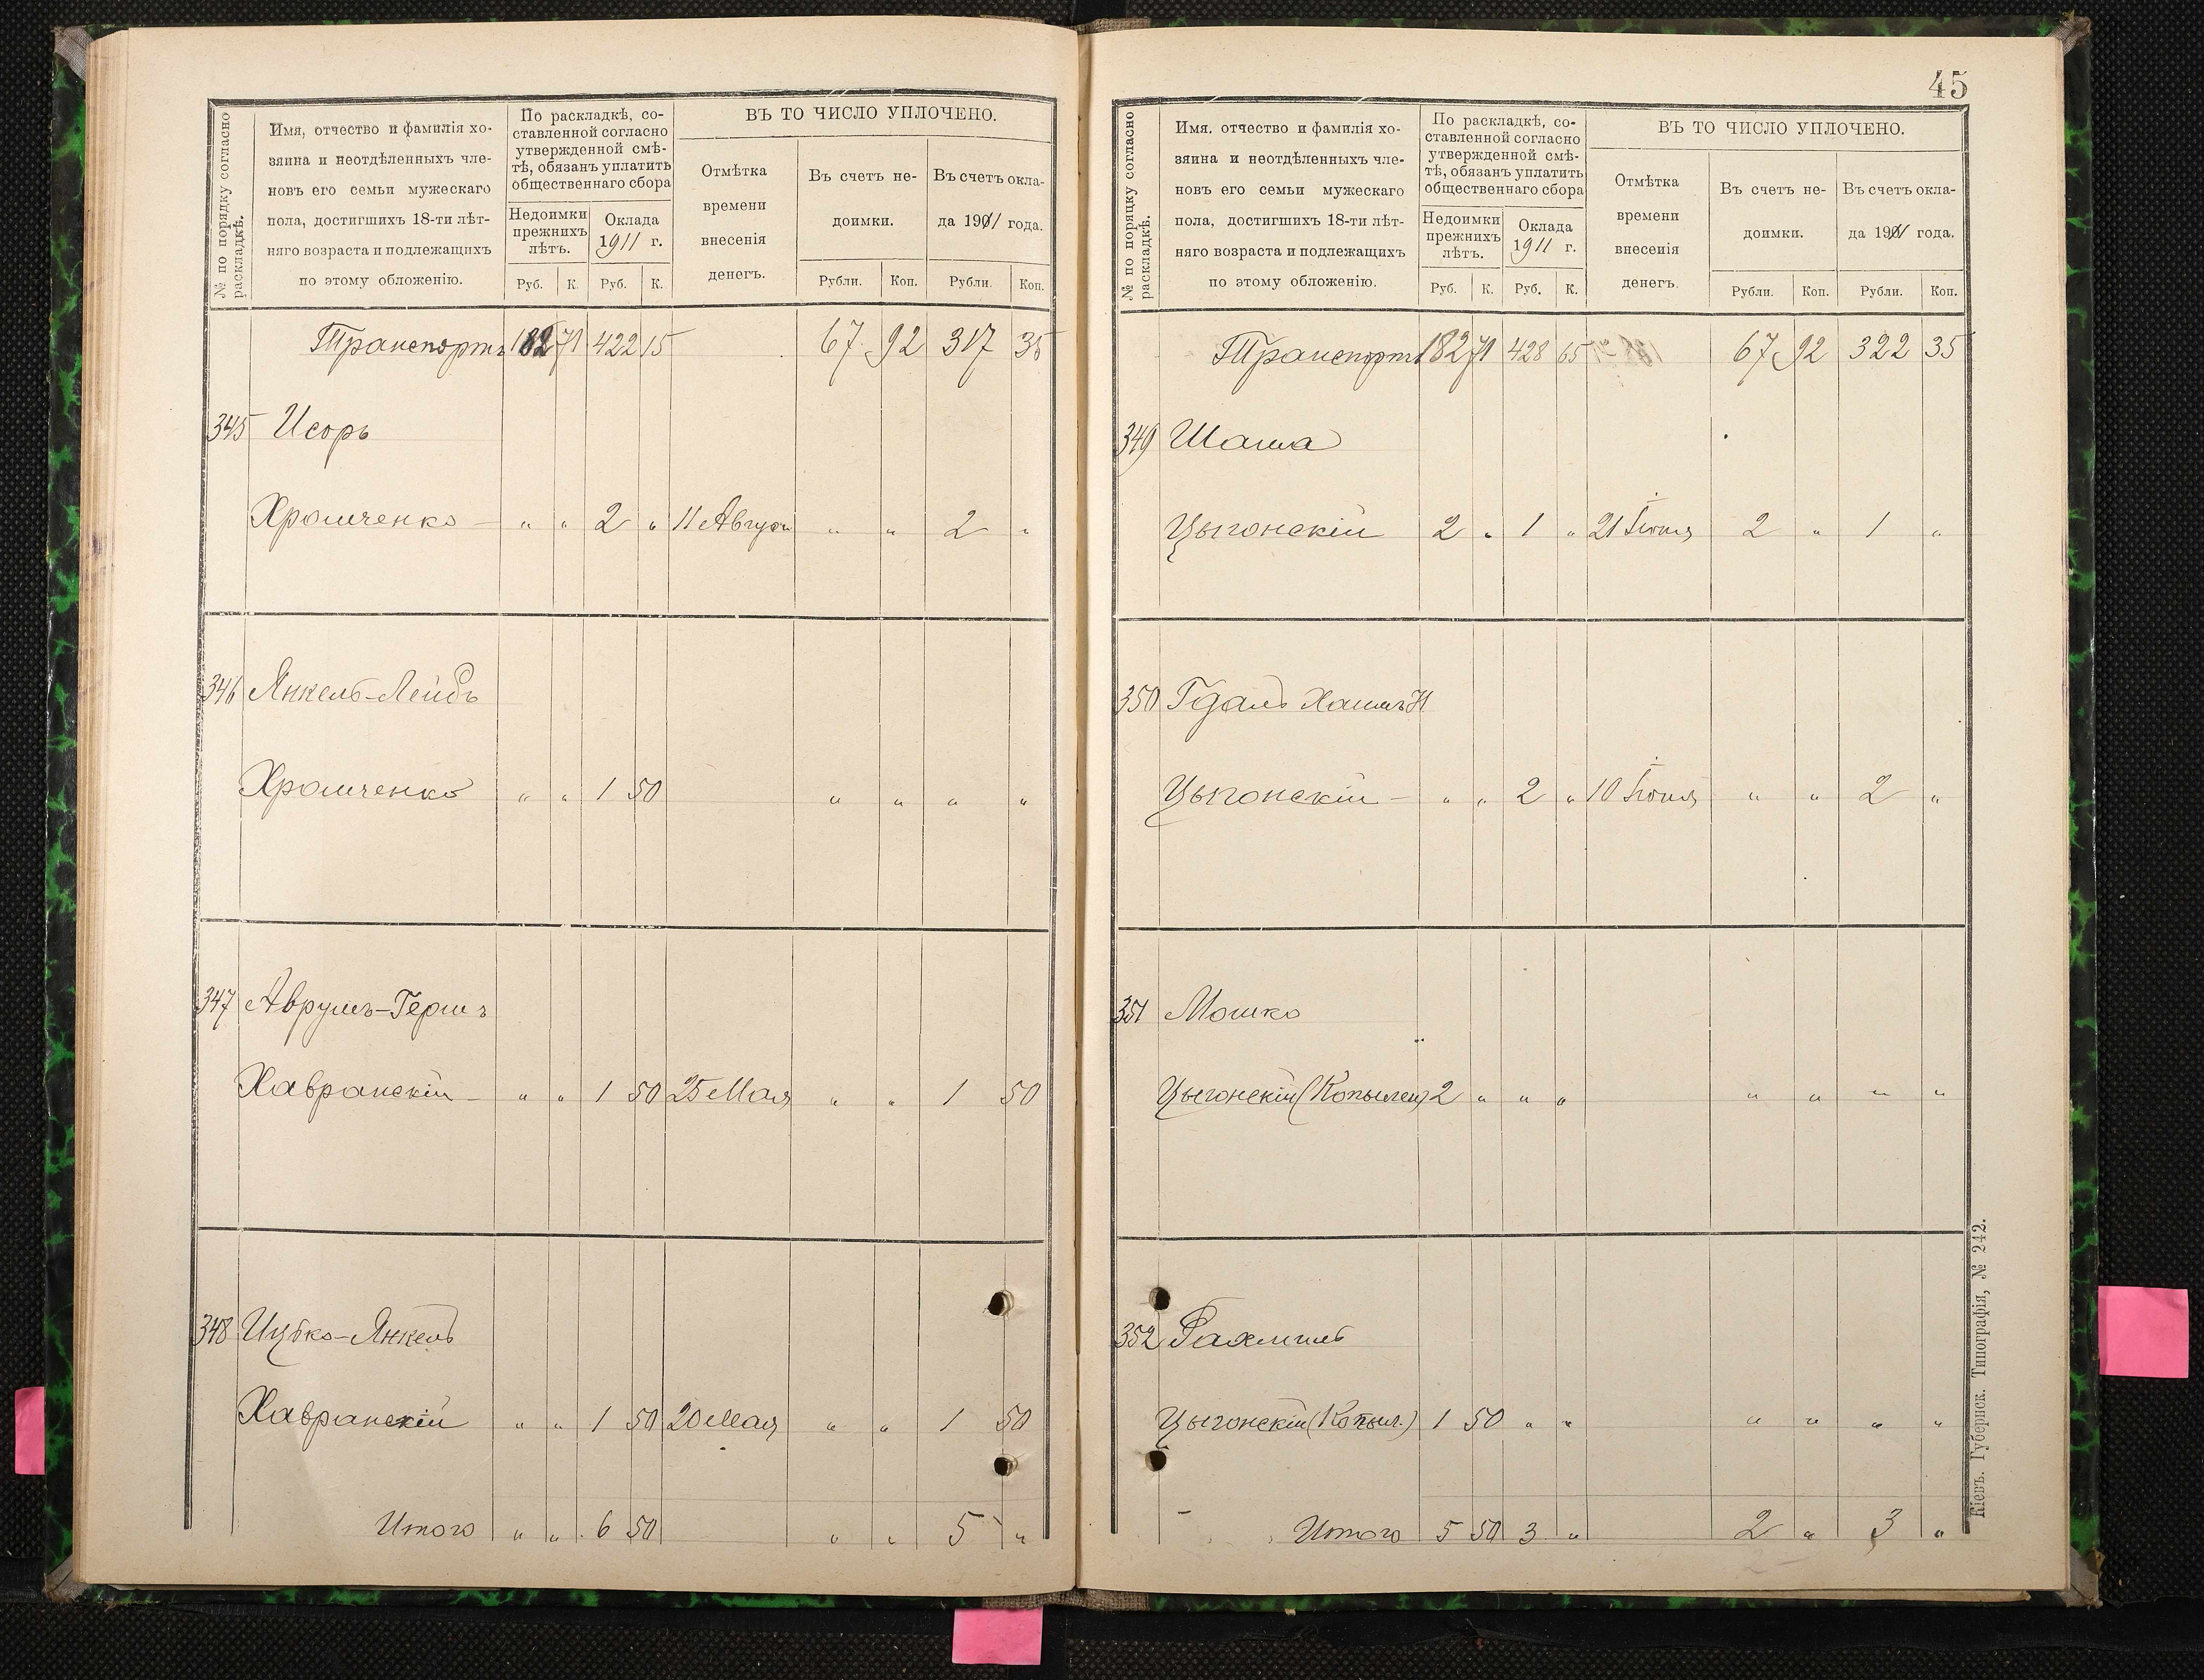 № по порядку согласно раскладкѣ.
Имя, отчество и фамилія хо-
зяина и неотдѣленныхъ чле-
новъ его семьи мужескаго
пола, достигшихъ 18-ти лѣт-
няго возраста и подлежащихъ
по этому обложенію.
По раскладкѣ, со-
ставленной согласно
утвержденной смѣ-
тѣ, обязанъ уплатить
общественнаго сбора
Недоимки
прежнихъ
лѣтъ.
Оклада
1911 г.
Руб. К. Руб. К.
ВЪ ТО ЧИСЛО УПЛОЧЕНО.
Отмѣтка
времени
внесенія
денегъ.
Въ счетъ не-
доимки.
Рубли. Коп.
Въ счетъ окла-
да 1911 года.
Рубли. Коп.
Транспортъ 182 71 422 15 67 92 317 35
345 Исоръ
Хромченко - " " 2 " 11 Август " " 2 "
346 Янкель-Лейбъ
Хромченко " " 1 50 " " " "
347 Аврумъ-Гершъ
Хавранскій - " " 1 50 25 Мая " " 1 50
348 Ицько-Янкель
Хавранскій " " 1 50 20 Мая " " 1 50
Итого " " 6 50 " " 5 "
45
№ по порядку согласно раскладкѣ.
Имя. отчество и фамилія хо-
зяина и неотдѣленныхъ чле-
новъ его семьи мужескаго
пола, достигшихъ 18-ти лѣт-
няго возраста и подлежащихъ
по этому обложенію.
По раскладкѣ, со-
ставленной согласно
утвержденной смѣ-
тѣ, обязанъ уплатить
общественнаго сбора
Недоимки
прежнихъ
лѣтъ.
Оклада
1911 г.
Руб. К. Руб. К.
ВЪ ТО ЧИСЛО УПЛОЧЕНО.
Отмѣтка
времени
внесенія
денегъ.
Въ счетъ не-
доимки.
Рубли. Коп.
Въ счетъ окла-
да 1911 года.
Рубли. Коп.
Транспортъ 182 71 428 65 67 92 322 35
349 Шама
Цыгонскій 2 " 1 " 21 Іюня 2 " 1 "
350 Гдаль Хаимъ Н
Цыгонскій - " " 2 " 10 Іюня " " 2 "
351 Мошко
Цыгонскій (Копылец) 2 " " " " " " "
352 Рахмиль
Цыгонскій (Копыл.) 1 50 " " " " " "
Итого 5 50 3 " 2 " 3 "
Кіевъ. Губернск. Типографія, № 242.